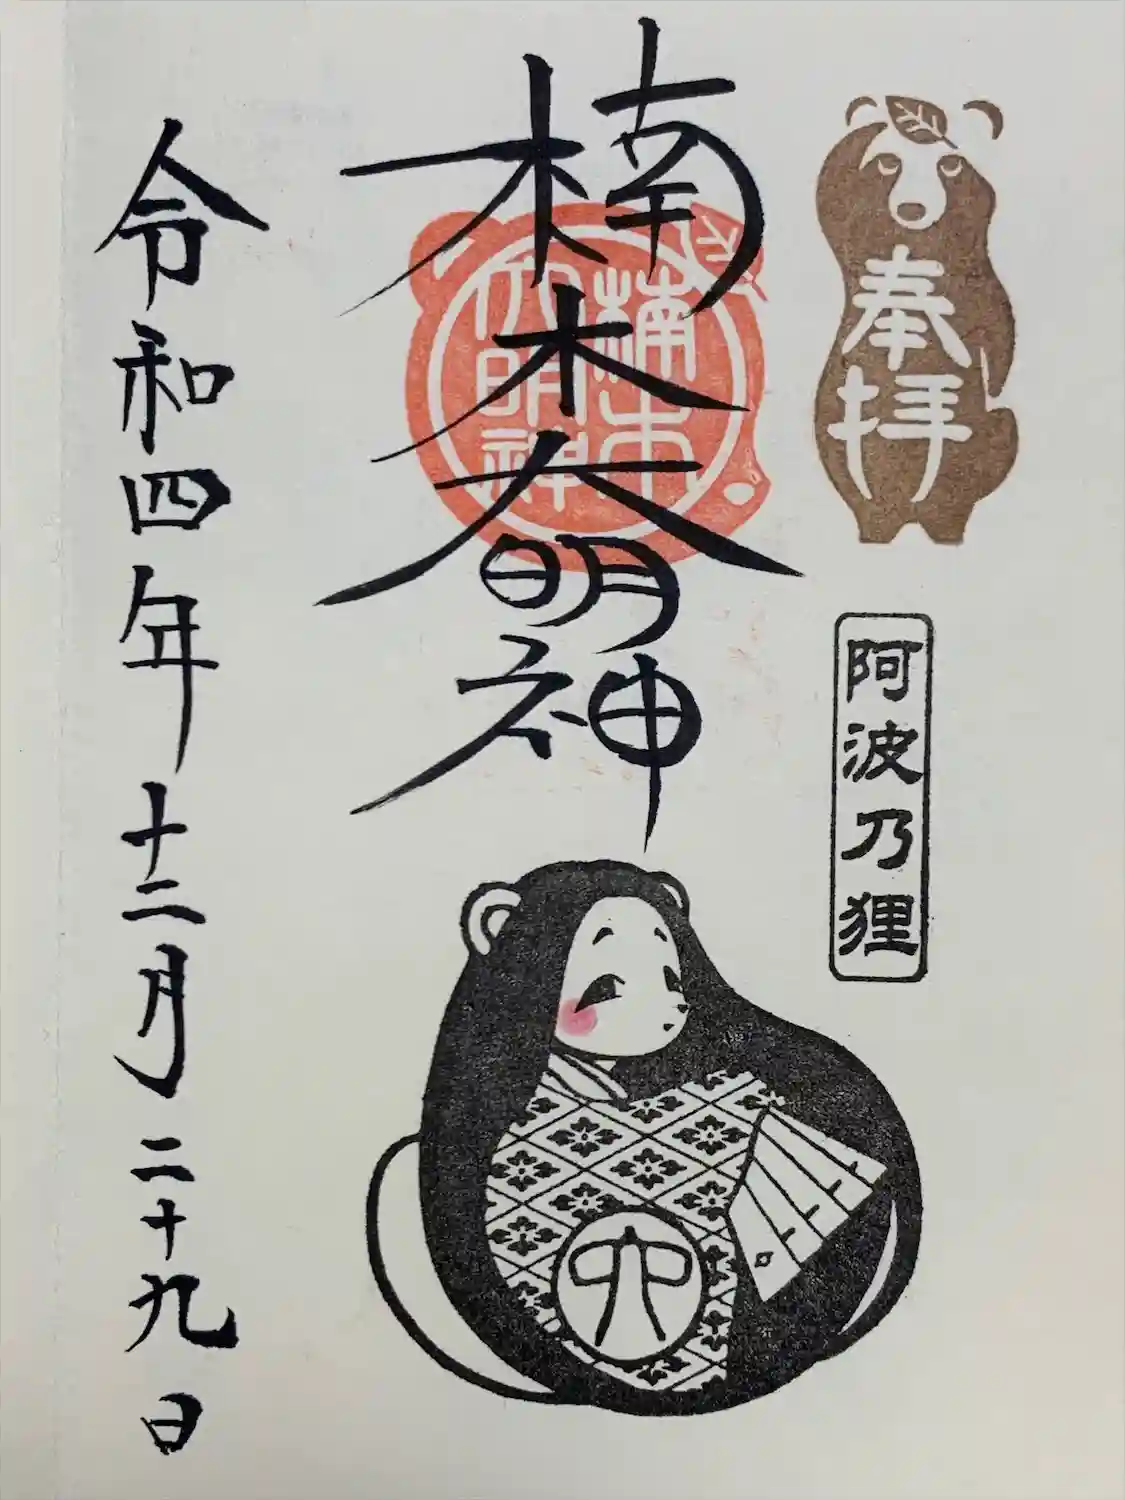 奉拝
阿波乃狸
楠木大明神
楠木
大明神
六
令和四年十二月二十九日